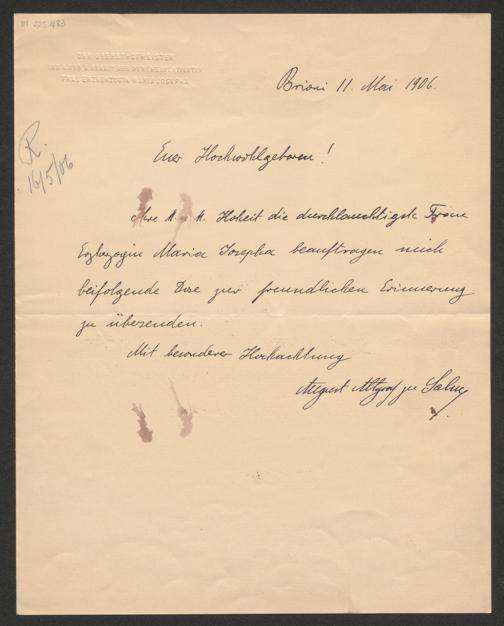 III 225.483
DER OBERSTHOFMEISTER
FRAU ERZHERZOGIN MARIA JOSEPHA
Brioni 11. Mai 1906.
R.
16/5/06
Euer Hochwohlgeboren!
Ihre k. u. k. Hoheit die durchlauchtigste Frau
Erzherzogin Maria Josepha beauftragen mich
beifolgende Dose zur freundlichen Erinnerung
zu übersenden.
Mit besonderer Hochachtung
August Altgraf zu Salm